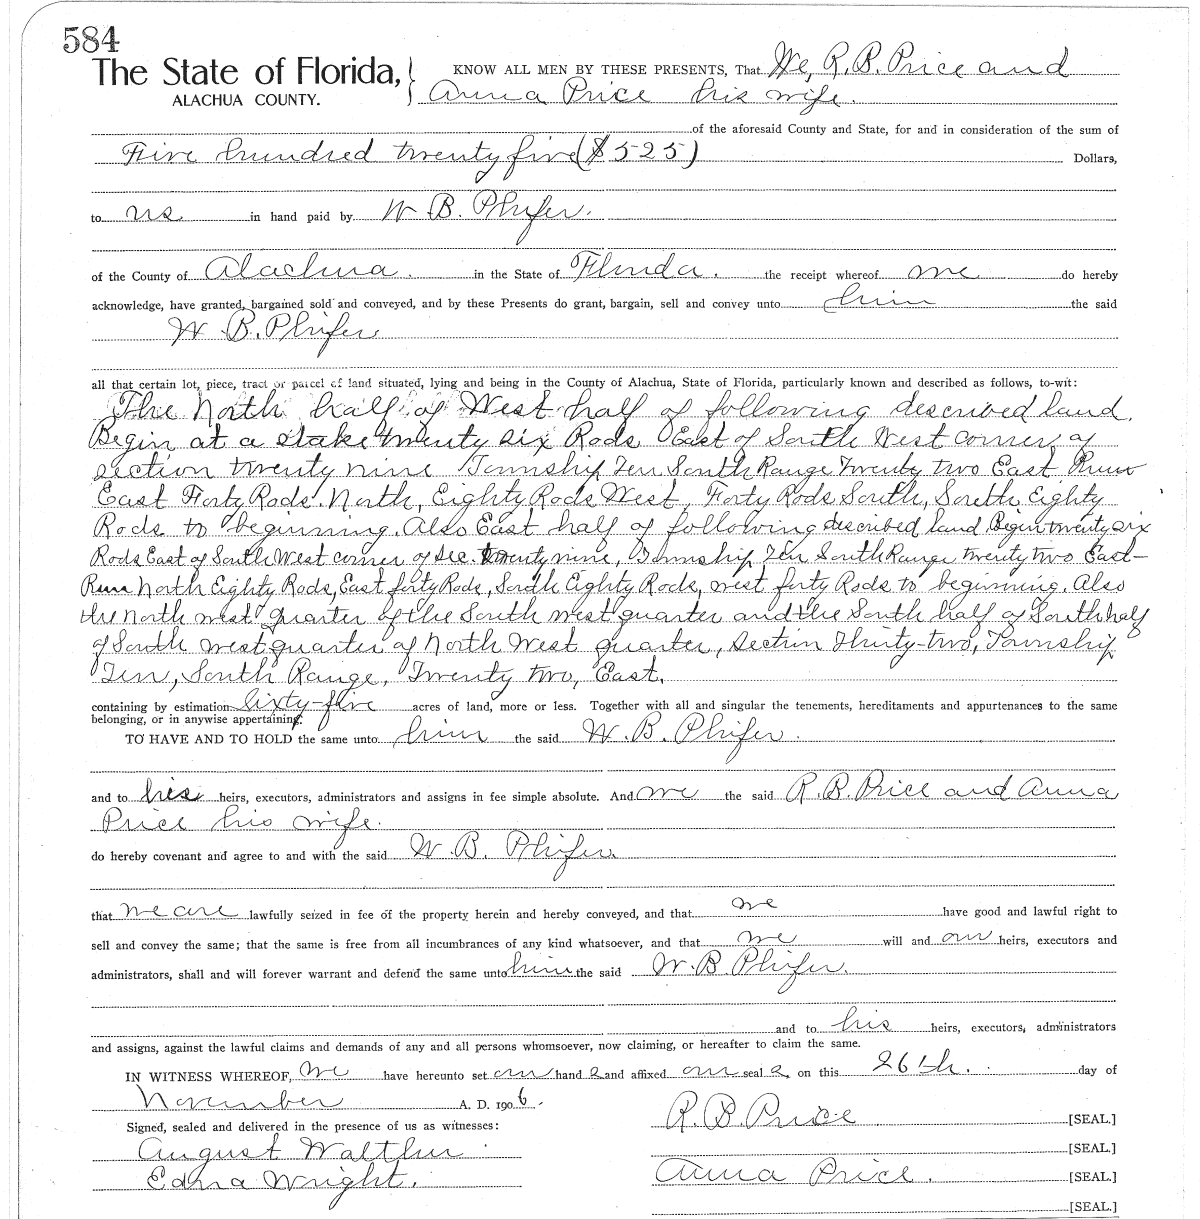 584
The State of Florida, KNOW ALL MEN BY THESE PRESENTS, That We, R. B. Price and
ALACHUA COUNTY. Anna Price his wife.
of the aforesaid County and State, for and in consideration of the sum of
Five hundred twenty five ($525) Dollars,
to us in hand paid by W. B. Phifer.
of the County of Alachua. in the State of Florida. the receipt whereof we do hereby
acknowledge, have granted, bargained sold and conveyed, and by these Presents do grant, bargain, sell and convey unto him the said
W. B. Phifer
all that certain lot, piece, tract or parcel of land situated, lying and being in the County of Alachua, State of Florida, particularly known and described as follows, to-wit:
The North half of West half of following described land.
Begin at a stake twenty six Rods East of South West corner of
section twenty nine Township Ten South Range Twenty two East Run
East Forty Rods. North, Eighty Rods West, Forty Rods South, South Eighty
Rods to beginning. Also East half of following described land Begin twenty six
Rods East of South West corner of Sec. twenty nine, Township Ten South Range twenty two East
Run North Eighty Rods, East forty Rods, South Eighty Rods, west forty Rods to beginning. Also
the North west quarter of the South west quarter and the South half of South half
of South west quarter of North West quarter, Section Thirty-two, Township
Ten, South Range, Twenty two, East.
containing by estimation Sixty-five acres of land, more or less. Together with all and singular the tenements, hereditaments and appurtenances to the same
belonging, or in anywise appertaining.
TO HAVE AND TO HOLD the same unto him the said W. B. Phifer.
and to his heirs, executors, administrators and assigns in fee simple absolute. And we the said R. B. Price and Anna
Price his wife.
do hereby covenant and agree to and with the said W. B. Phifer
that we are lawfully seized in fee of the property herein and hereby conveyed, and that we have good and lawful right to
sell and convey the same; that the same is free from all incumbrances of any kind whatsoever, and that we will and our heirs, executors and
administrators, shall and will forever warrant and defend the same unto him the said W. B. Phifer.
and to his heirs, executors, administrators
and assigns, against the lawful claims and demands of any and all persons whomsoever, now claiming, or hereafter to claim the same.
IN WITNESS WHEREOF, we have hereunto set our hand s and affixed our seal s on this 26th. day of
November A. D. 1906.
Signed, sealed and delivered in the presence of us as witnesses: R. B. Price [SEAL.]
August Walthur [SEAL.]
Edna Wright. Anna Price. [SEAL.]
[SEAL.]